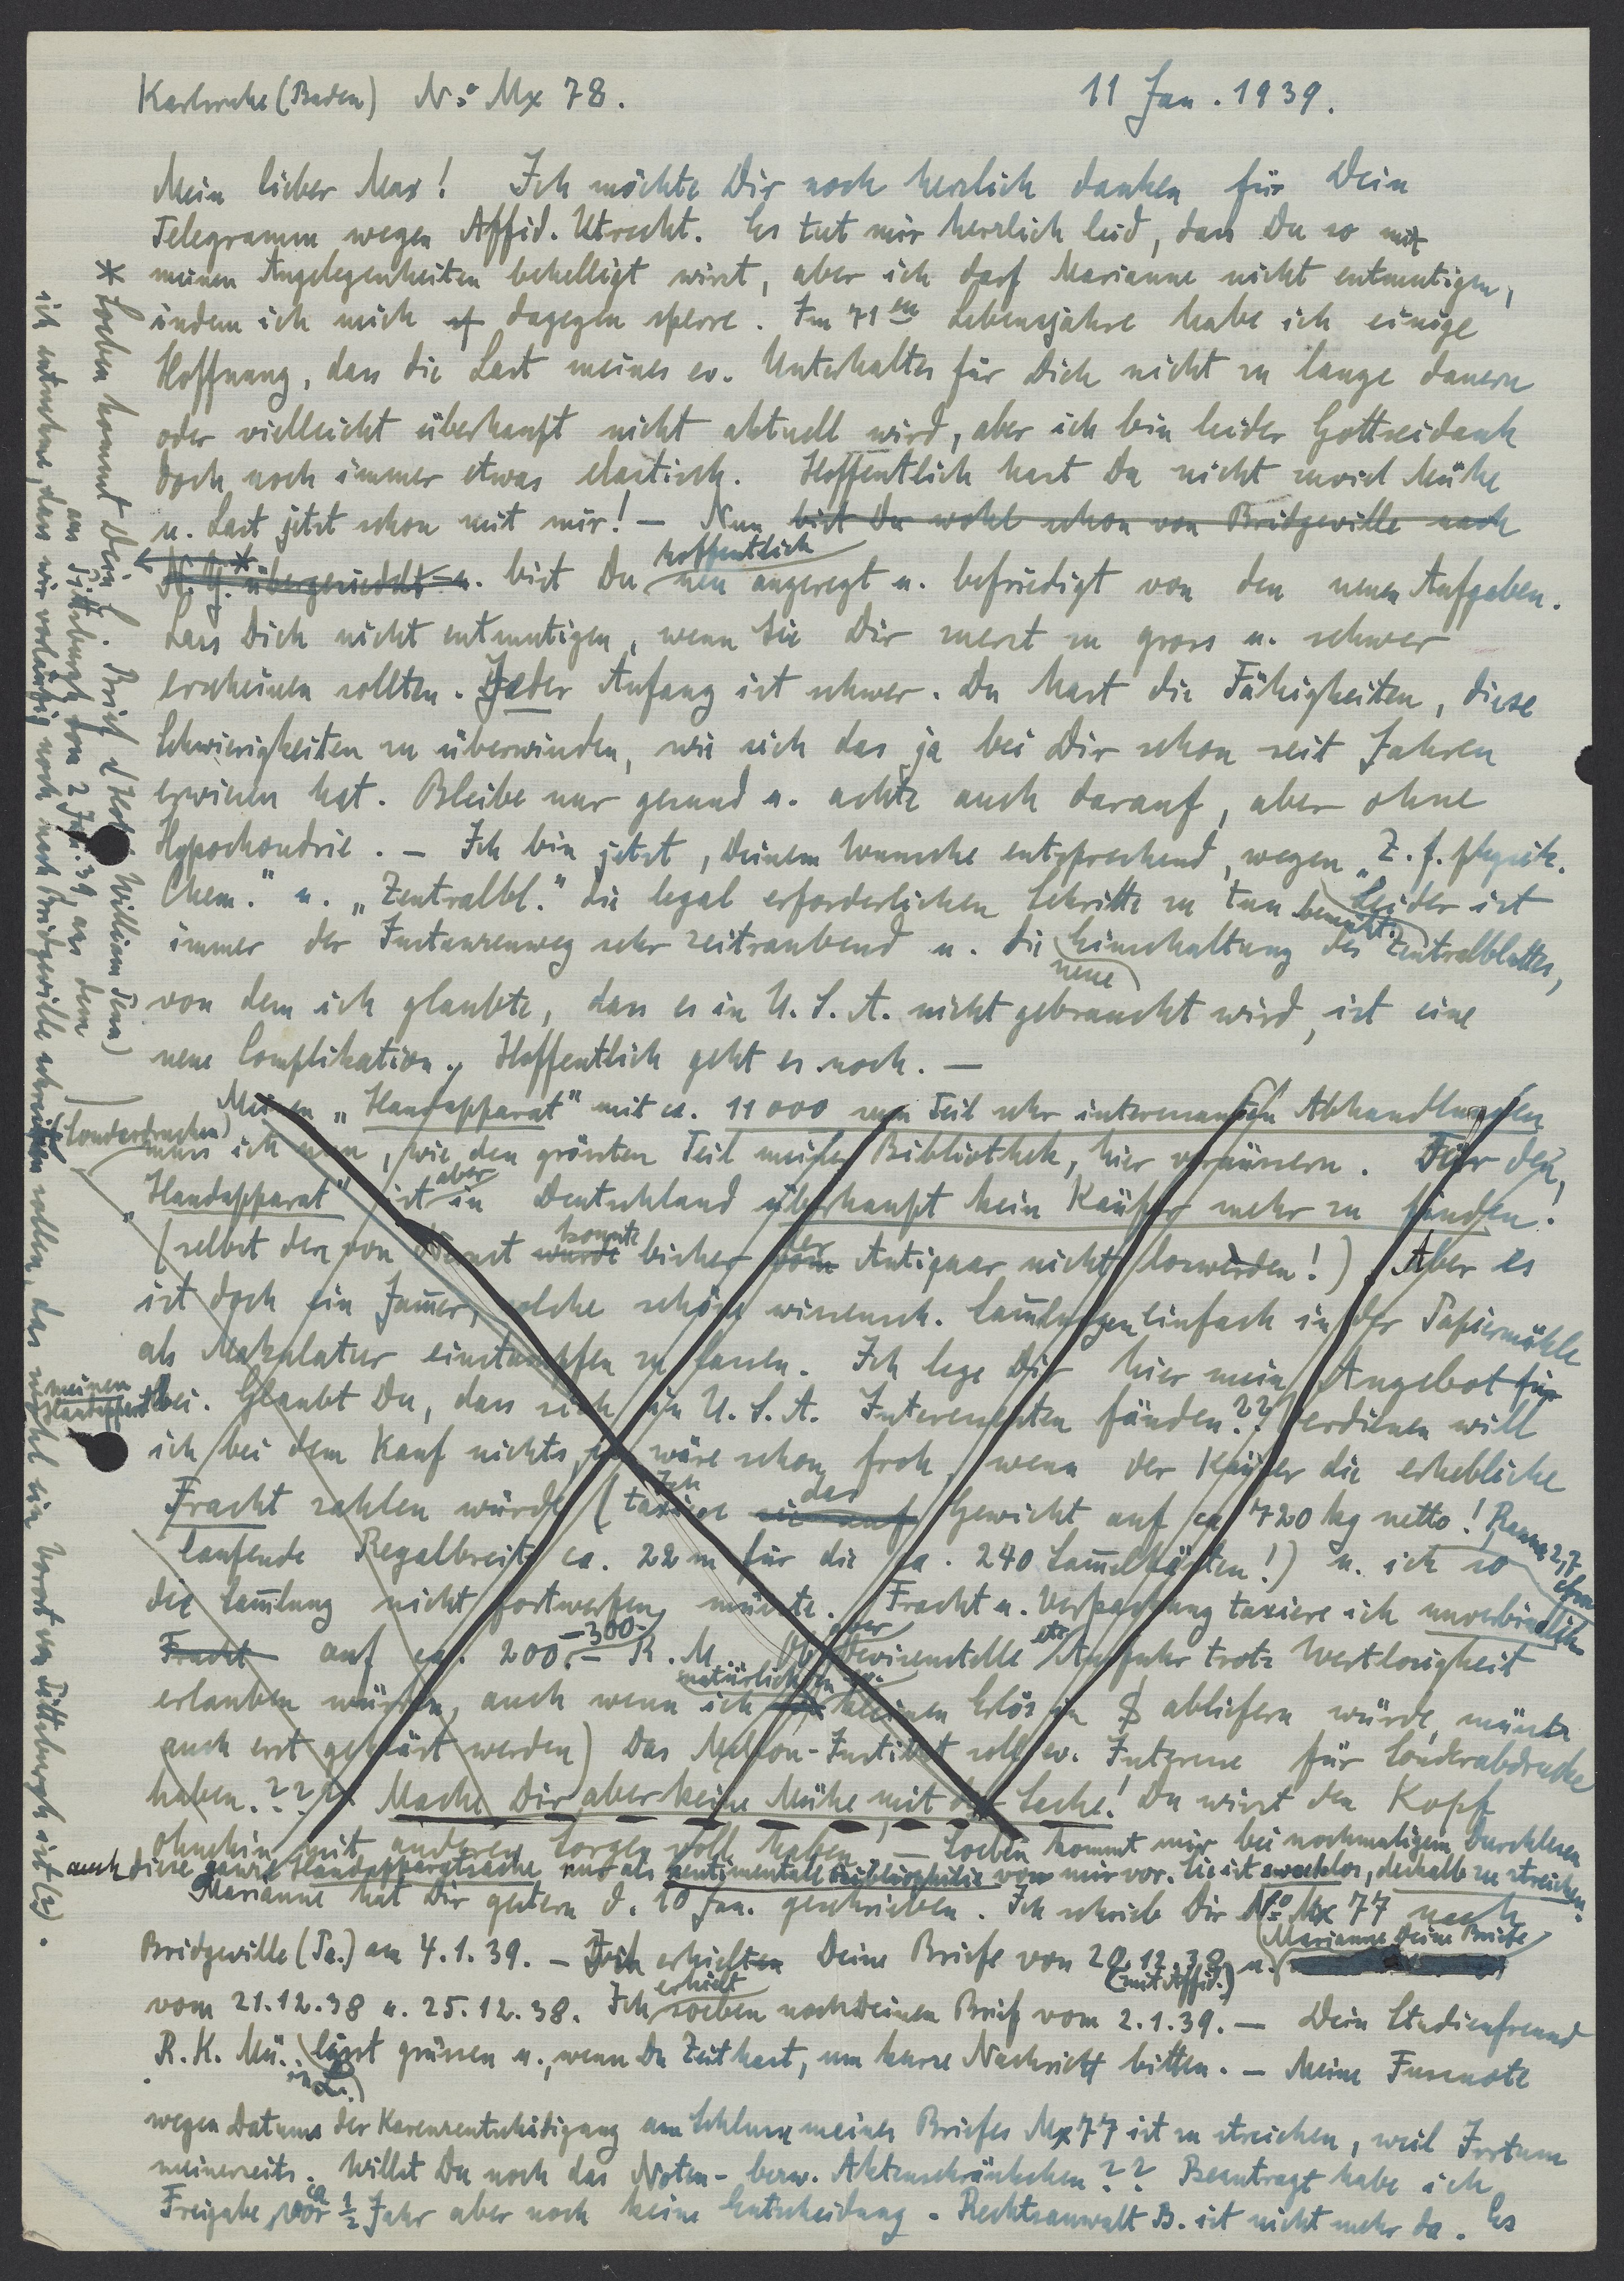 Karlsruhe (Baden) No Mx 78. 11 Jan. 1939.
Mein lieber Max! Ich möchte Dir noch herzlich danken für Dein
Telegramm wegen Affid. Utrecht. Es tut mir herzlich leid, dass Du so mit
meinen Angelegenheiten behelligt wirst, aber ich darf Marianne nicht entmutigen,
indem ich mich dagegen sperre. Im 71en Lebensjahre habe ich einige
Hoffnung, dass die Last meines ev. Unterhaltes für Dich nicht zu lange dauern
oder vielleicht überhaupt nicht aktuell wird, aber ich bin leider Gottseidank
doch noch immer etwas elastisch. Hoffentlich hast Du nicht zuviel Mühe
u. Last jetzt schon mit mir! – Nun bist Du wohl schon von Bridgeville nach
N.Y.* übergesiedelt u. bist Du hoffentlich neu angeregt u. befriedigt von den neuen Aufgaben.
Lass Dich nicht entmutigen, wenn Sie Dir zuerst zu gross u. schwer
erscheinen sollten. Jeder Anfang ist schwer. Du hast die Fähigkeiten, diese
Schwierigkeiten zu überwinden, wie sich das ja bei Dir schon seit Jahren
erwiesen hat. Bleibe nur gesund u. achte auch darauf, aber ohne
Hypochondrie. – Ich bin jetzt, Deinem Wunsche entsprechend, wegen „Z. f. physik.
Chem." u. „Zentralbl." die legal erforderlichen Schritte zu tun bemüht. Leider ist
immer der Instanzenweg sehr zeitraubend u. die neue Einschaltung des Zentralblattes,
von dem ich glaubte, dass es in U.S.A. nicht gebraucht wird, ist eine
neue Complikation. Hoffentlich geht es noch. –
Meinen „Handapparat" mit ca. 11000 zum Teil sehr interessanten Abhandlungen
(Sonderdrucken) muss ich nun, wie den grössten Teil meiner Bibliothek, hier veräussern. Für den
„Handapparat" ist aber in Deutschland überhaupt kein Käufer mehr zu finden!
(selbst den von Nernst wurde konnte bisher vom der Antiquar nicht loswerden!) Aber es
ist doch ein Jammer, solche schöne wissensch. Sammlungen einfach in der Papiermühle
als Makulatur einstampfen zu lassen. Ich lege Dir hier mein Angebot für
meinen Handapparat bei. Glaubst Du, dass sich in U.S.A. Interessenten fänden?? Verdienen will
ich bei dem Kauf nichts, wäre schon froh, wenn der Käufer die erhebliche
Fracht zahlen würde (Ich taxiere sie auf das Gewicht auf ca 720 kg netto! Raum 2,7 cbm
laufende Regalbreite ca. 22 m für die ca. 240 Sammelkästen!) u. ich so
die Sammlung nicht fortwerfen müsste. Fracht u. Verpackung taxiere ich unverbindlich
Fracht auf ca. 200.– –300– R.M. Ob aber Devisenstelle etc Ausfuhr trotz Wertlosigkeit
erlauben würden, auch wenn ich natürlich den ev. kleinen Erlös in $ abliefern würde, müsste
auch erst geklärt werden) Das Mellon-Institut soll ev. Interesse für Sonderabdrucke
haben.??? Mache Dir aber keine Mühe mit der Sache! Du wirst den Kopf
ohnehin mit anderen Sorgen voll haben. – Soeben kommt mir bei nochmaligem Durchlesen
auch diese ganze Handapparatsache nur als sentimentale Bibliophilie von mir vor. Sie ist zwecklos, deshalb zu streichen.
Marianne hat Dir gestern d. 10 Jan. geschrieben. Ich schrieb Dir No Mx 77 nach
Bridgeville (Pa.) am 4.1.39. – Ich erhielten Deine Briefe von 20.12.38 (mit Affid.) u. Marianne Deine Briefe
vom 21.12.38 u. 25.12.38. Ich erhielt soeben noch Deinen Brief vom 2.1.39. – Dein Studienfreund
R.K. Mü. (in L.) lässt grüssen u., wenn Du Zeit hast, um kurze Nachricht bitten. – Meine Fussnote
wegen Datums der Karenzentschädigung am Schluss meines Briefes Mx 77 ist zu streichen, weil Irrtum
meinerseits. Willst Du noch das Noten- bezw. Aktenschränkchen?? Beantragt habe ich
Freigabe vor ca ½ Jahr aber noch keine Entscheidung. Rechtsanwalt B. ist nicht mehr da. Es
* Soeben kommt Dein l. Brief (Hotel William Penn)
aus Pittsburgh vom 2 Jan. 39, aus dem
ich entnehme, dass wir vorläufig noch nach Bridgeville schreiben sollen, das wohl ein Vorort von Pittsburgh ist (?).